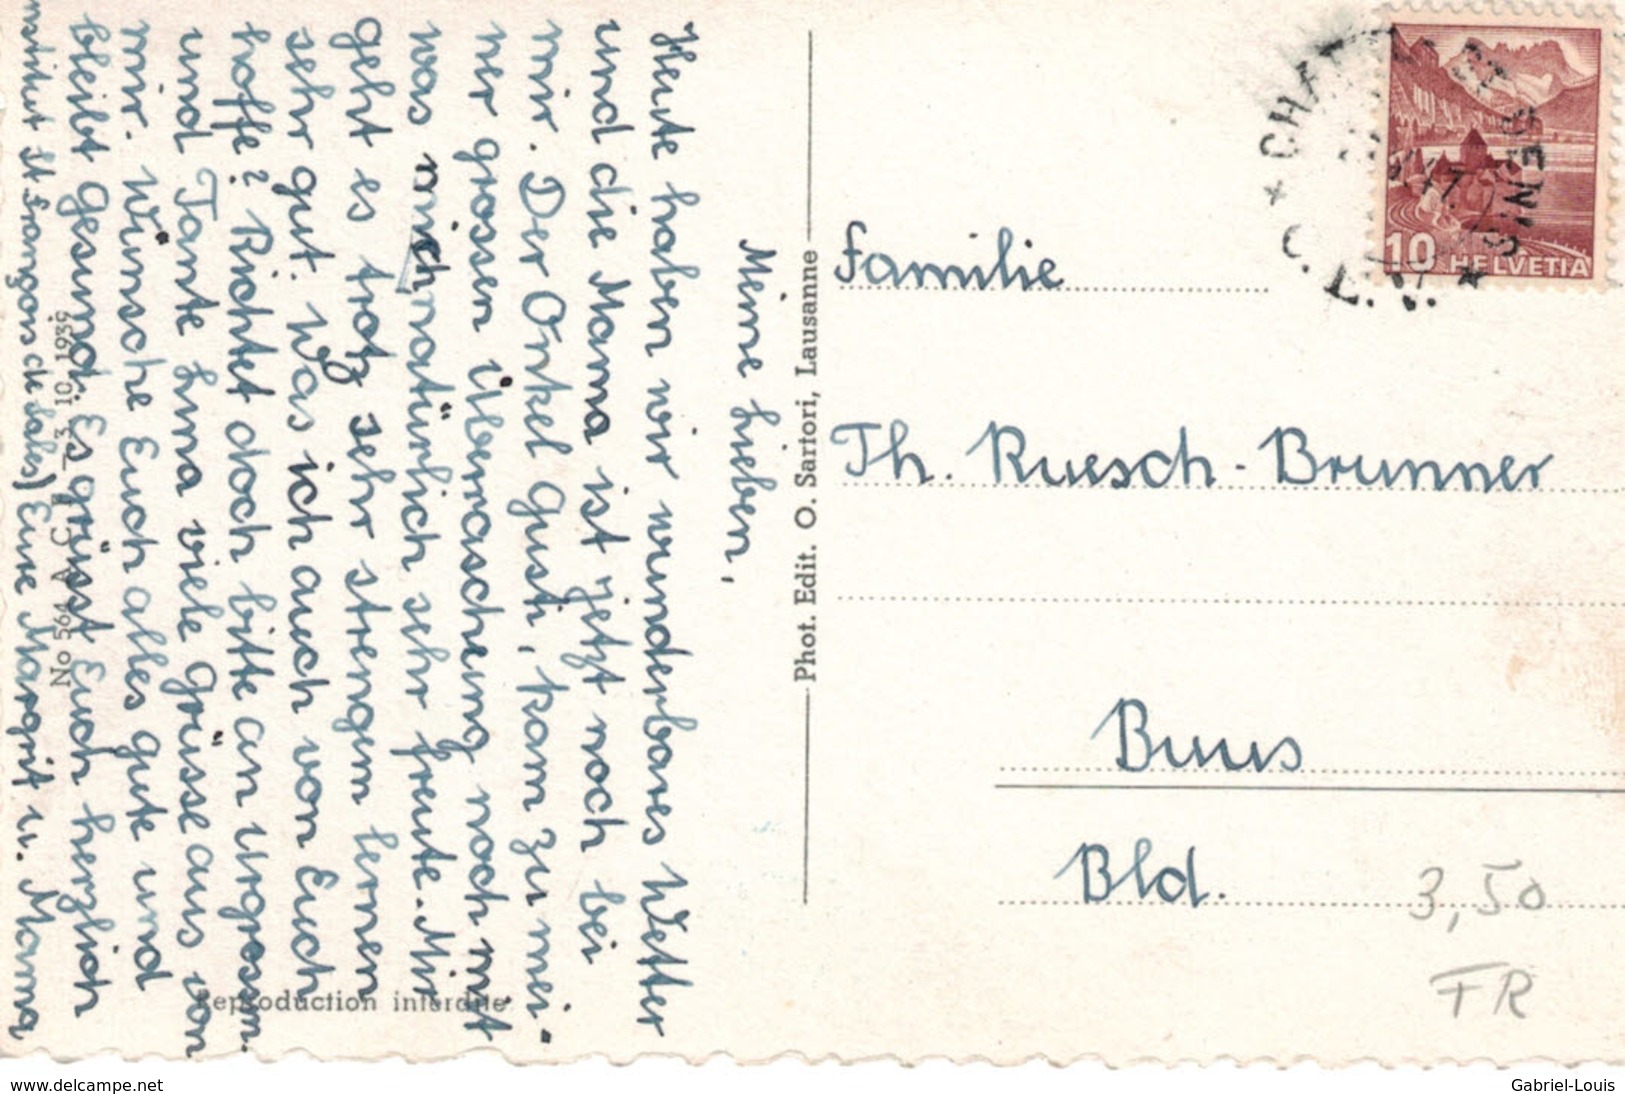 Meine Lieben,
Heute haben wir wunderbares Wetter
und die Mama ist jetzt noch bei
mir. Der Onkel Gusti, kam zu mei-
ner grossen Überraschung noch mit
was mich natürlich sehr freute. Mir
geht es trotz sehr strengem lernen
sehr gut. Was ich auch von Euch
hoffe? Richtet doch bitte an Urgrossm.
und Tante Irma viele Grüsse aus von
mir. Wünsche Euch alles gute und
bleibt gesund. Es grüsst Euch herzlich
Eure Margrit u. Mama
institut St François de Sales)
No 564 A. C. F. 3. 10. 1939
Reproduction interdite
Phot. Edit. O. Sartori, Lausanne
CHATEL ST DENIS
10 HELVETIA
Familie
Th. Ruesch-Brunner
Buus
Bld.
3,50
FR
www.delcampe.net
Gabriel-Louis